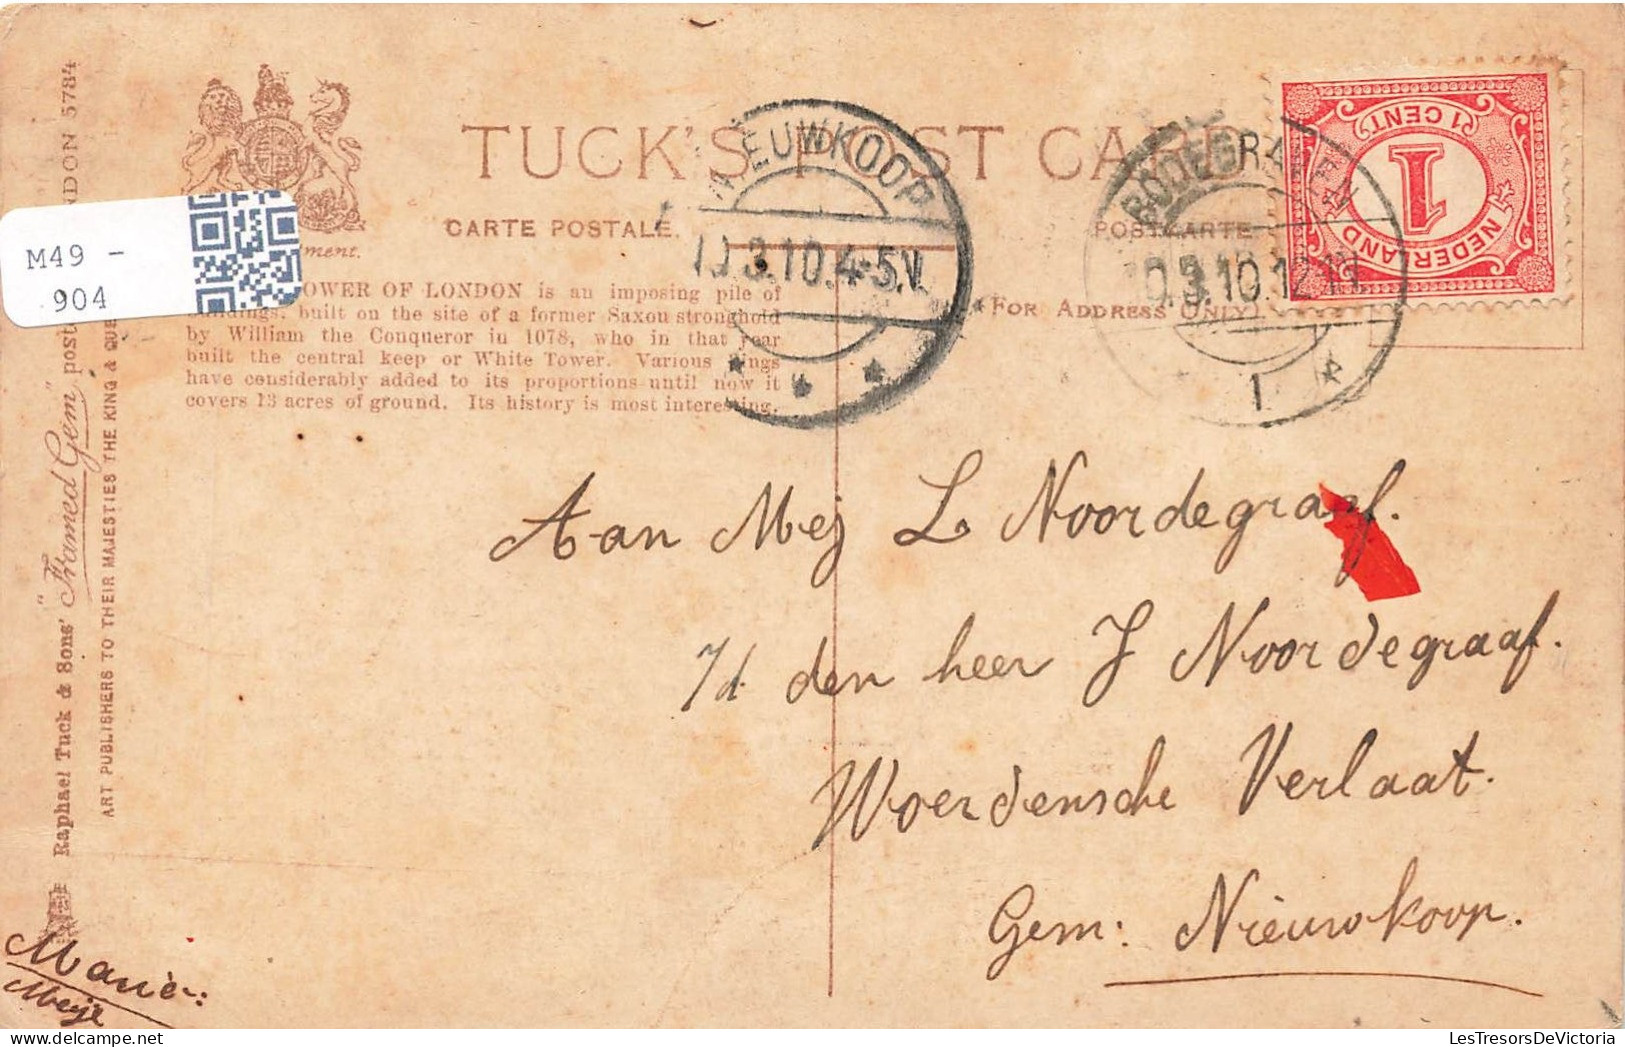 TUCK'S POST CARD
CARTE POSTALE.
POSTKARTE
(FOR ADDRESS ONLY)
M49 -
904
TOWER OF LONDON is an imposing pile of
buildings, built on the site of a former Saxon stronghold
by William the Conqueror in 1078, who in that year
built the central keep or White Tower. Various kings
have considerably added to its proportions until now it
covers 13 acres of ground. Its history is most interesting.
NIEUWKOOP
10.3.10.4-5.V.
BODEGRAVEN
10.3.10.12-1
1
NEDERLAND
1 CENT
1
Raphael Tuck & Sons' "Framed Gem" post LONDON 5784
ART PUBLISHERS TO THEIR MAJESTIES THE KING & QUE
Aan Mej L Noordegraaf.
7/d den heer J Noordegraaf.
Woerdensche Verlaat.
Gem: Nieuwkoop.
Marie:
Meije
LesTresorsDeVictoria